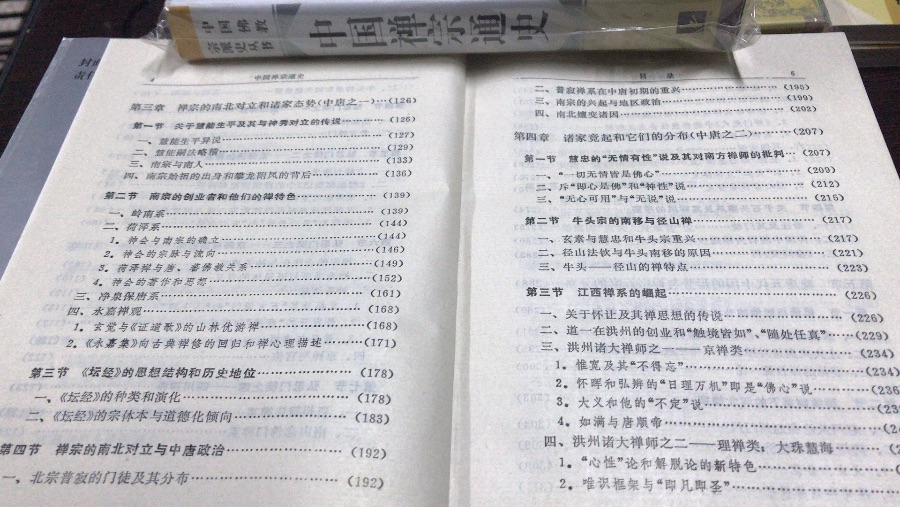 中国佛教
宗派史丛书
中国禅宗通史
4 中国禅宗通史
第三章 禅宗的南北对立和诸家态势(中唐之一)…(126)
第一节 关于慧能生平及其与神秀对立的传说……(126)
一、慧能生平异说……(127)
二、慧能嗣法略稽……(129)
三、南宗与南人……(133)
四、南宗始祖的出身和攀龙附凤的背后……(136)
第二节 南宗的创业者和他们的禅特色……(139)
一、岭南系……(139)
二、荷泽系……(144)
1。神会与南宗的确立……(144)
2。神会的宗脉与流向……(146)
3。荷泽禅与唐、蕃佛教关系……(149)
4。神会的著作和思想……(152)
三、净泉保唐系……(161)
四、永嘉禅观……(168)
1。玄觉与《证道歌》的山林优游禅……(168)
2。《永嘉集》向古典禅修的回归和禅心理描述……(171)
第三节 《坛经》的思想结构和历史地位……(178)
一、《坛经》的种类和演化……(178)
二、《坛经》的宗体本与道德化倾向……(183)
第四节 禅宗的南北对立与中唐政治……(192)
一、北宗普寂的门徒及其分布……(192)
目录 5
二、普寂禅系在中唐初期的重兴……(195)
三、南宗的兴起与地区政治……(199)
四、南北嬗变诸因……(202)
第四章 诸家竞起和它们的分布(中唐之二)……(207)
第一节 慧忠的“无情有性”说及其对南方禅师的批判…(207)
一、“一切无情皆是佛心”……(209)
二、斥“即心是佛”和“神性”说……(212)
三、“无心可用”与“无说”说……(215)
第二节 牛头宗的南移与径山禅……(217)
一、玄素与慧忠和牛头宗重兴……(217)
二、径山法钦与牛头南移的原因……(221)
三、牛头——径山的禅特点……(223)
第三节 江西禅系的崛起……(226)
一、关于怀让及其禅思想的传说……(226)
二、道一在洪州的创业和“触境皆如”、“随处任真”…(229)
三、洪州诸大禅师之一——京禅类……(234)
1。惟宽及其“不得忘”……(234)
2。怀晖和弘辨的“日理万机”即是“佛心”说……(236
3。大义和他的“不定”说……(23
4。如满与唐顺帝……(2
四、洪州诸大禅师之二——理禅类:大珠慧海……(2
1。“心性”论和解脱论的新特色……(2
2。唯识框架与“即凡即圣”……